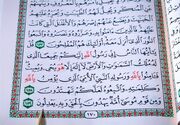 ٱلْخَبَٰٓئِثَ وَيَضَعُ عَنْهُمْ إِصْرَهُمْ وَٱلْأَغْلَٰلَ ٱلَّتِى كَانَتْ
عَلَيْهِمْ ۚ فَٱلَّذِينَ ءَامَنُوا۟ بِهِۦ وَعَزَّرُوهُ وَنَصَرُوهُ وَٱتَّبَعُوا۟
ٱلنُّورَ ٱلَّذِىٓ أُنزِلَ مَعَهُۥٓ ۙ أُو۟لَٰٓئِكَ هُمُ ٱلْمُفْلِحُونَ ١٥٧
قُلْ يَٰٓأَيُّهَا ٱلنَّاسُ إِنِّى رَسُولُ ٱللَّهِ إِلَيْكُمْ جَمِيعًا ٱلَّذِى
لَهُۥ مُلْكُ ٱلسَّمَٰوَٰتِ وَٱلْأَرْضِ ۖ لَآ إِلَٰهَ إِلَّا هُوَ يُحْىِۦ وَيُمِيتُ ۖ
فَـَٔامِنُوا۟ بِٱللَّهِ وَرَسُولِهِ ٱلنَّبِىِّ ٱلْأُمِّىِّ ٱلَّذِى يُؤْمِنُ بِٱللَّهِ
وَكَلِمَٰتِهِۦ وَٱتَّبِعُوهُ لَعَلَّكُمْ تَهْتَدُونَ ١٥٨
وَمِن قَوْمِ مُوسَىٰٓ أُمَّةٌ يَهْدُونَ بِٱلْحَقِّ وَبِهِۦ يَعْدِلُونَ ١٥٩
١٧٠